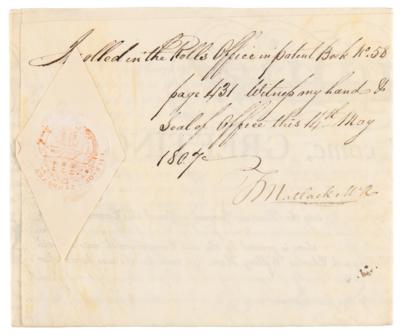 Inrolled in the Rolls Office in patent Book No. 58
page 431 Witness my hand &
Seal of Office this 14th May
1807
T Matlack M R